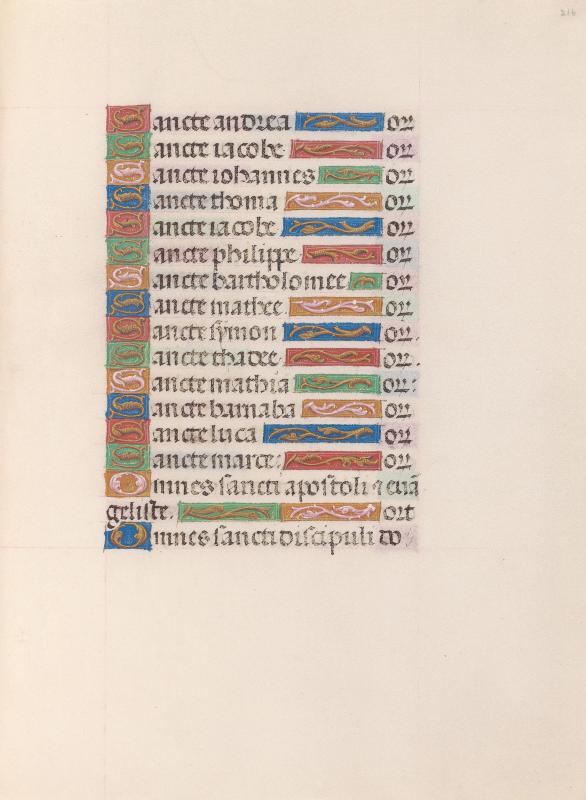 216
Sancte andrea or
Sancte iacobe or
Sancte iohannes or
Sancte thoma or
Sancte iacobe or
Sancte philippe or
Sancte bartholomee or
Sancte mathee or
Sancte symon or.
Sancte thadee or.
Sancte mathia or:
Sancte barnaba or
Sancte luca or
Sancte marce. or
Omnes sancti apostoli ⁊ euā
geliste. ort
Omnes sancti discipuli do